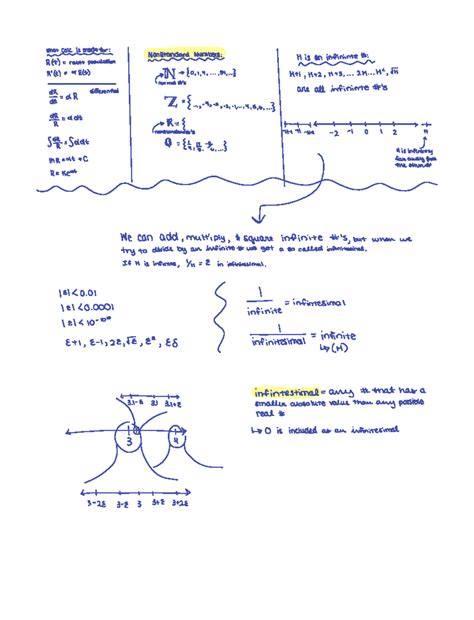 what calc is made for:
R(t) = rabbit population
R'(t) = αR(t)
dR/dt = αR differential
dR/R = αdt
∫dR/R = ∫αdt
ln R = αt + C
Nonstandard Numbers:
ℕ → {0,1,2,...
normal #'s
ℤ = {
ℝ = {
nonstandard #'s
ℚ = {
H is an infinite #:
H+1, H+2, H+3, ... 2H... H², √H
are all infinite #'s
-2 -1 0 1 2 H
H is infinitely far away from the
We can add, multiply, & square infinite #'s, but when we
try to divide by an infinite # we get a so called infintesimal.
If H is infinite, 1/H = ε in infintesimal.
|ε| < 0.01
|ε| < 0.0001
ε+1, ε-1, 2ε, √ε, ε², εδ
1/infinite = infintesimal
1/infinitesimal = infinite
↳ (H)
infintestimal = any # that has a
smaller absolute value than any possible
real #
↳ 0 is included as an infinitesimal
3.1-ε 3.1 3.1+ε
3 4
3-2ε 3-ε 3 3+ε 3+2ε